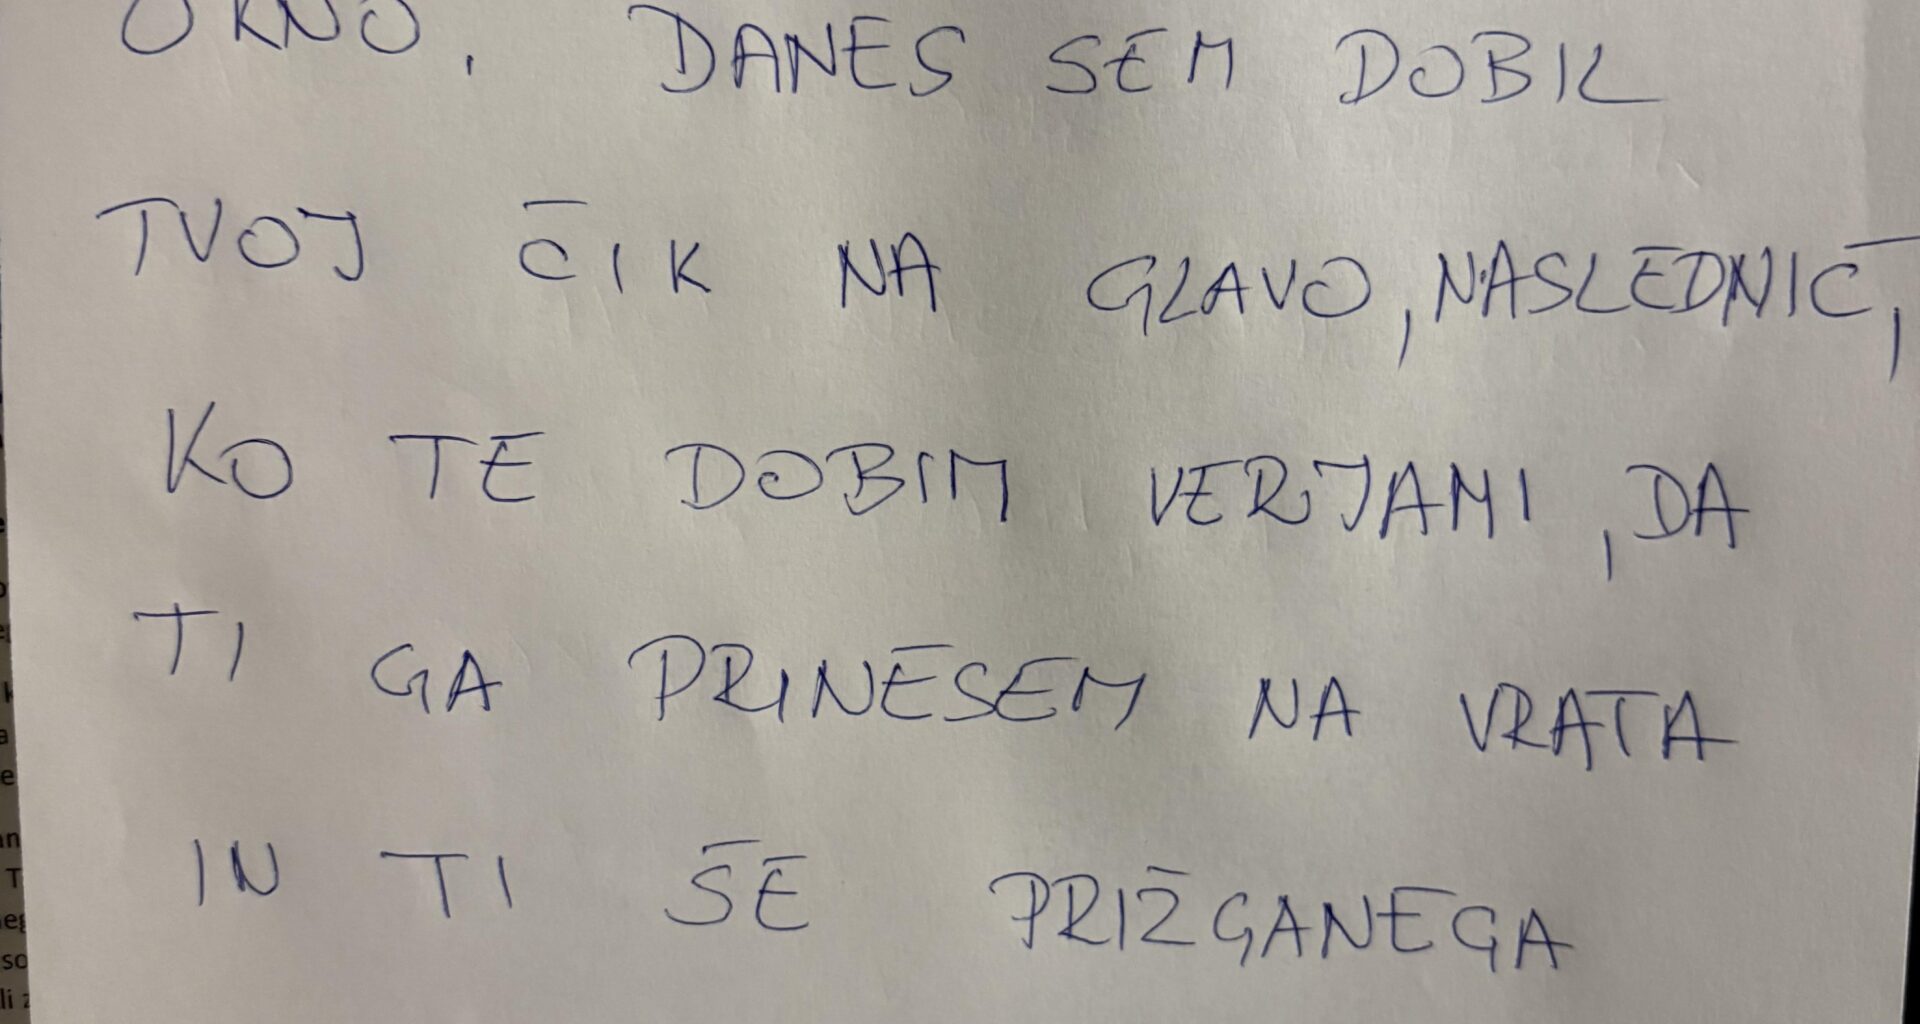 OKNO. DANES SEM DOBIL
TVOJ ČIK NA GLAVO, NASLEDNIČ,
KO TE DOBIM VERJAMI, DA
TI GA PRINESEM NA VRATA
IN TI ŠE PRIŽGANEGA